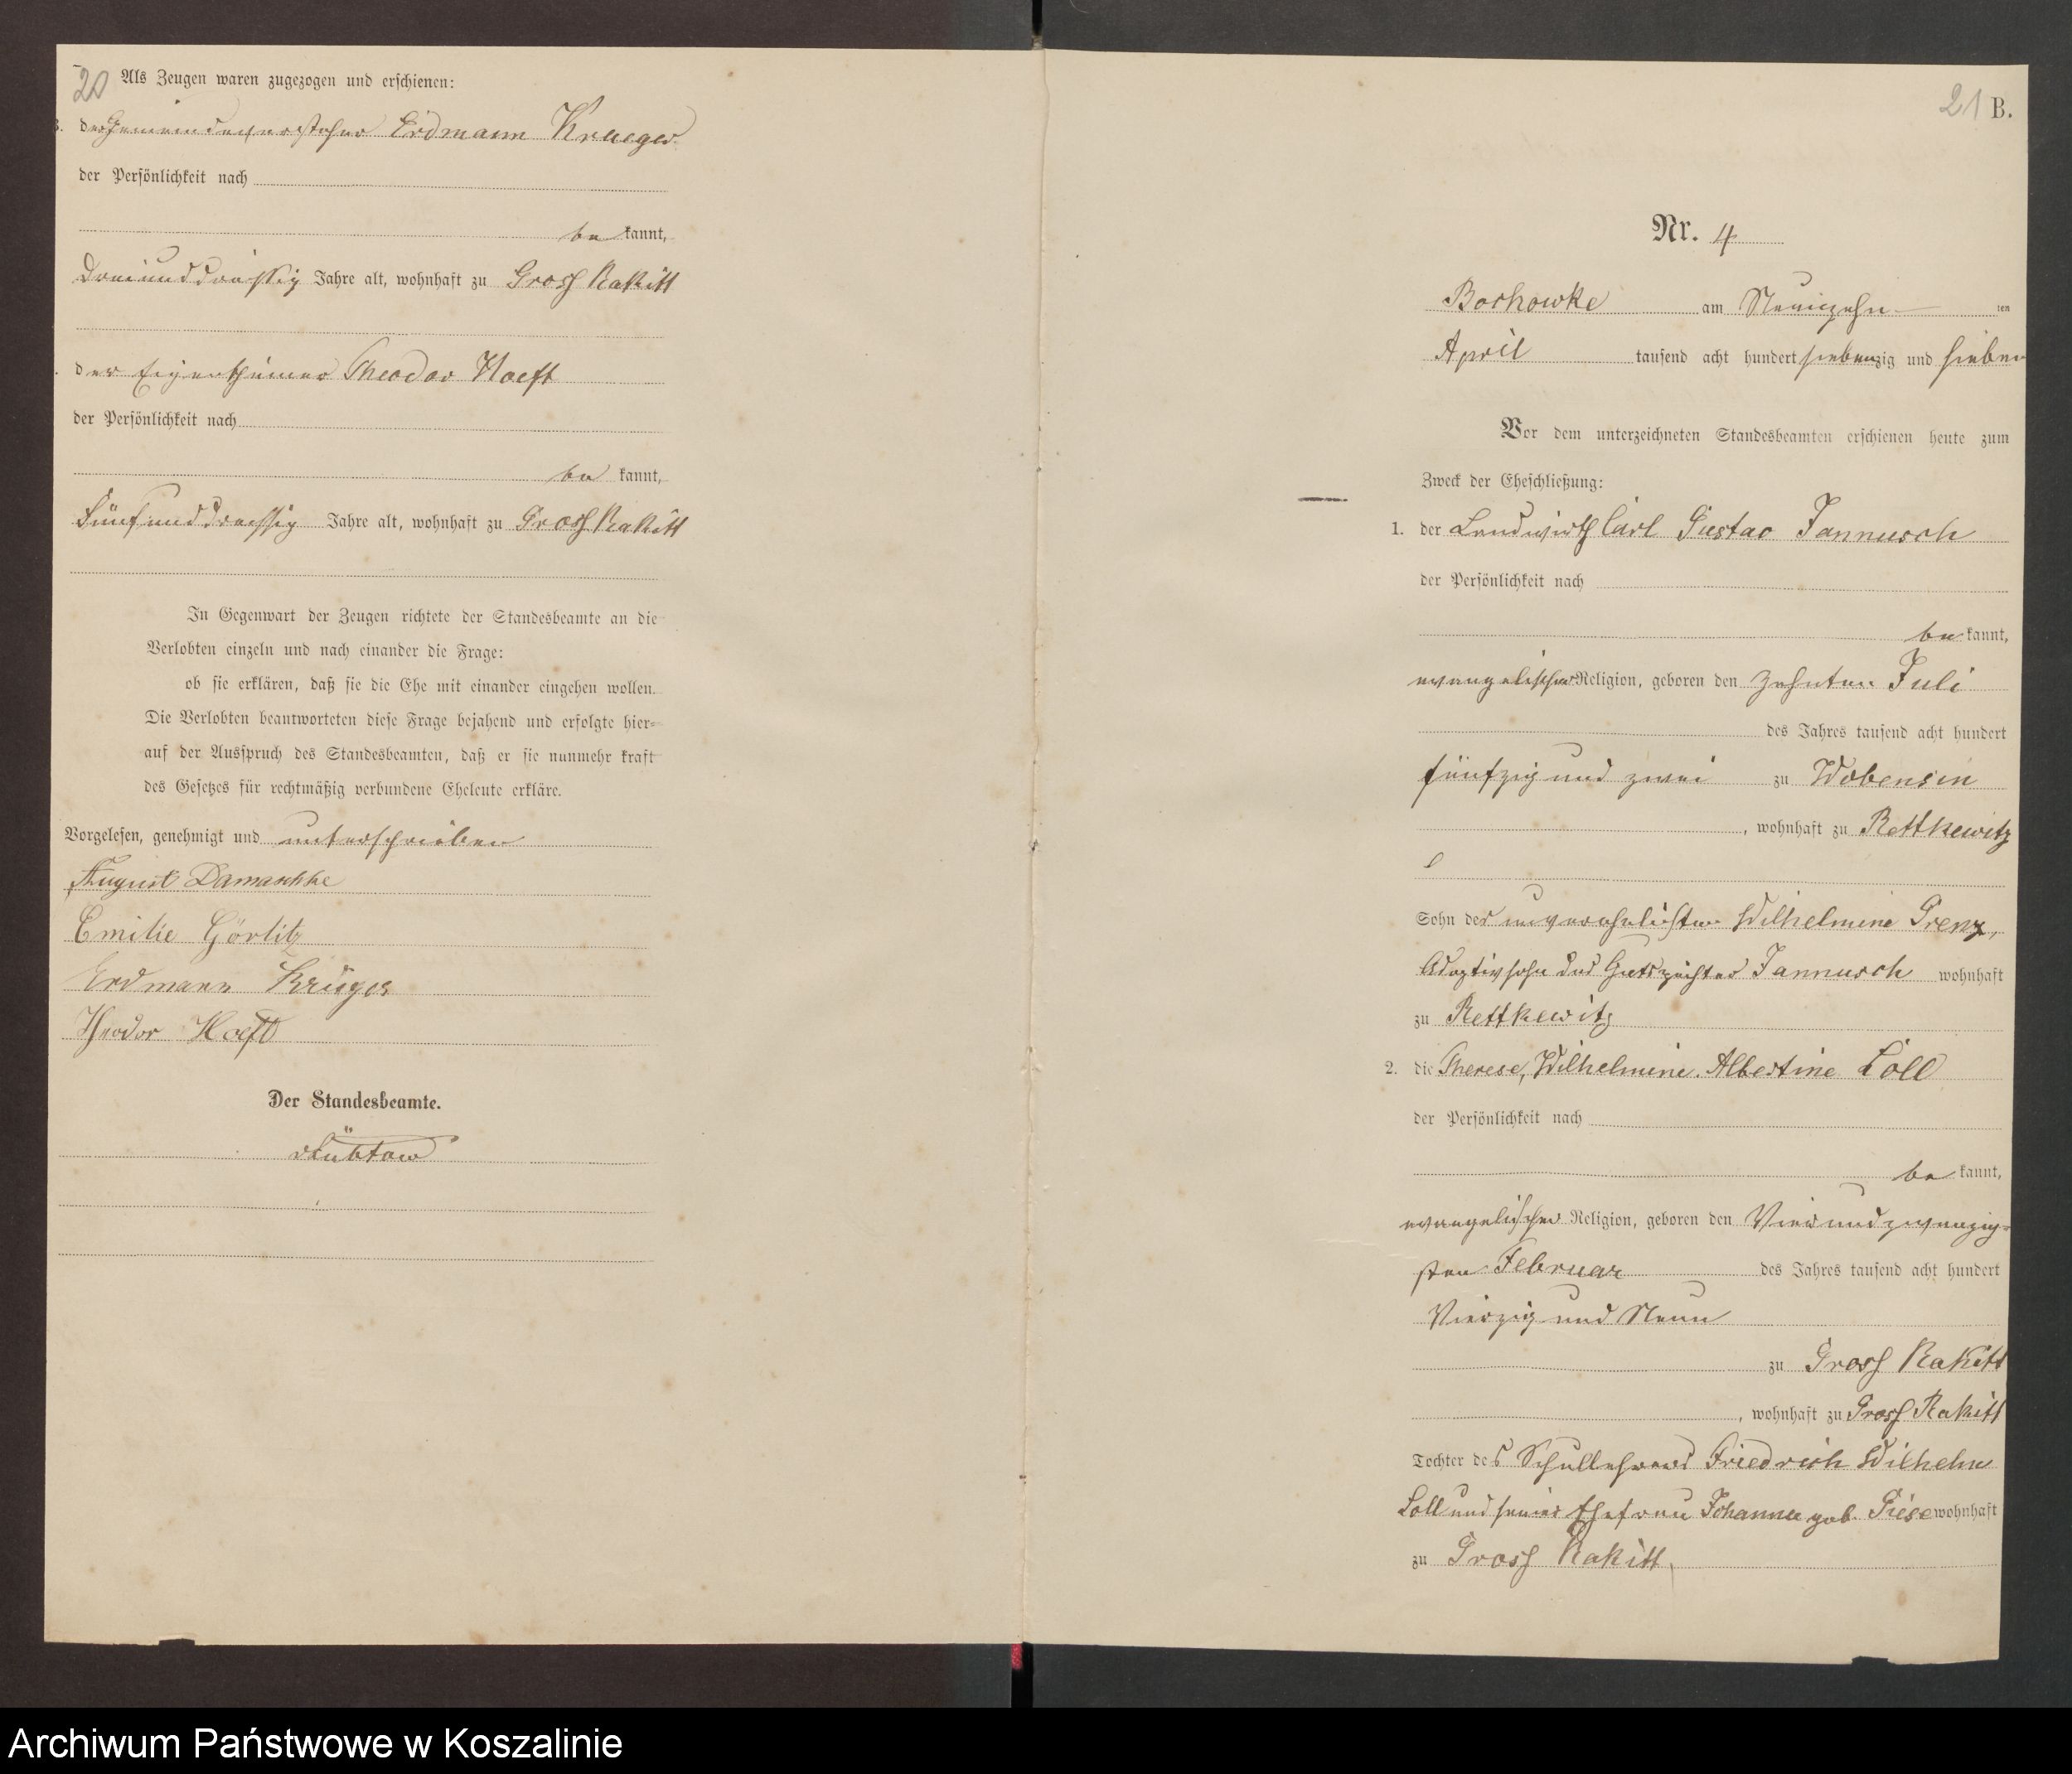 20
Als Zeugen waren zugezogen und erschienen:
3. der Gemeindevorsteher Erdmann Krueger
der Persönlichkeit nach
be kannt,
Dreiunddreissig Jahre alt, wohnhaft zu Gross Rakitt
der Eigenthümer Theodor Hoeft
der Persönlichkeit nach
be kannt,
Fünfunddreissig Jahre alt, wohnhaft zu Gross Rakitt
In Gegenwart der Zeugen richtete der Standesbeamte an die
Verlobten einzeln und nach einander die Frage:
ob sie erklären, daß sie die Ehe mit einander eingehen wollen.
Die Verlobten beantworteten diese Frage bejahend und erfolgte hier-
auf der Ausspruch des Standesbeamten, daß er sie nunmehr kraft
des Gesetzes für rechtmäßig verbundene Eheleute erkläre.
Vorgelesen, genehmigt und unterschrieben
August Damaschke
Emilie Görlitz
Erdmann Krüger
Theodor Hoeft
Der Standesbeamte.
21 B.
Nr. 4
Boschowke am Neunzehn ten
April tausend acht hundert siebenzig und sieben
Vor dem unterzeichneten Standesbeamten erschienen heute zum
Zweck der Eheschließung:
1. der Landwirth Carl Gustav Jannusch
der Persönlichkeit nach
be kannt,
evangelischer Religion, geboren den zehnten Juli
des Jahres tausend acht hundert
fünfzig und zwei zu Wobensin
, wohnhaft zu Rettkewitz
Sohn der unverehelichten Wilhelmine Prenz,
Adoptivsohn des Gutspächter Jannusch wohnhaft
zu Rettkewitz
2. die Therese, Wilhelmine Albertine Loll
der Persönlichkeit nach
be kannt,
evangelischer Religion, geboren den Vierundzwanzig-
sten Februar des Jahres tausend acht hundert
Vierzig und Neun
zu Gross Rakitt
, wohnhaft zu Gross Rakitt
Tochter des Schullehrers Friedrich Wilhelm
Loll und seiner Ehefrau Johanna geb. wohnhaft
zu Gross Rakitt,
Archiwum Państwowe w Koszalinie